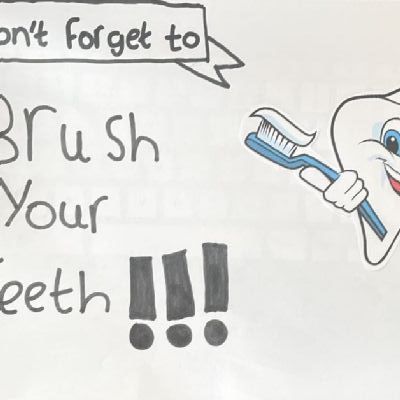 on't forget to
Brush
Your
Teeth !!!